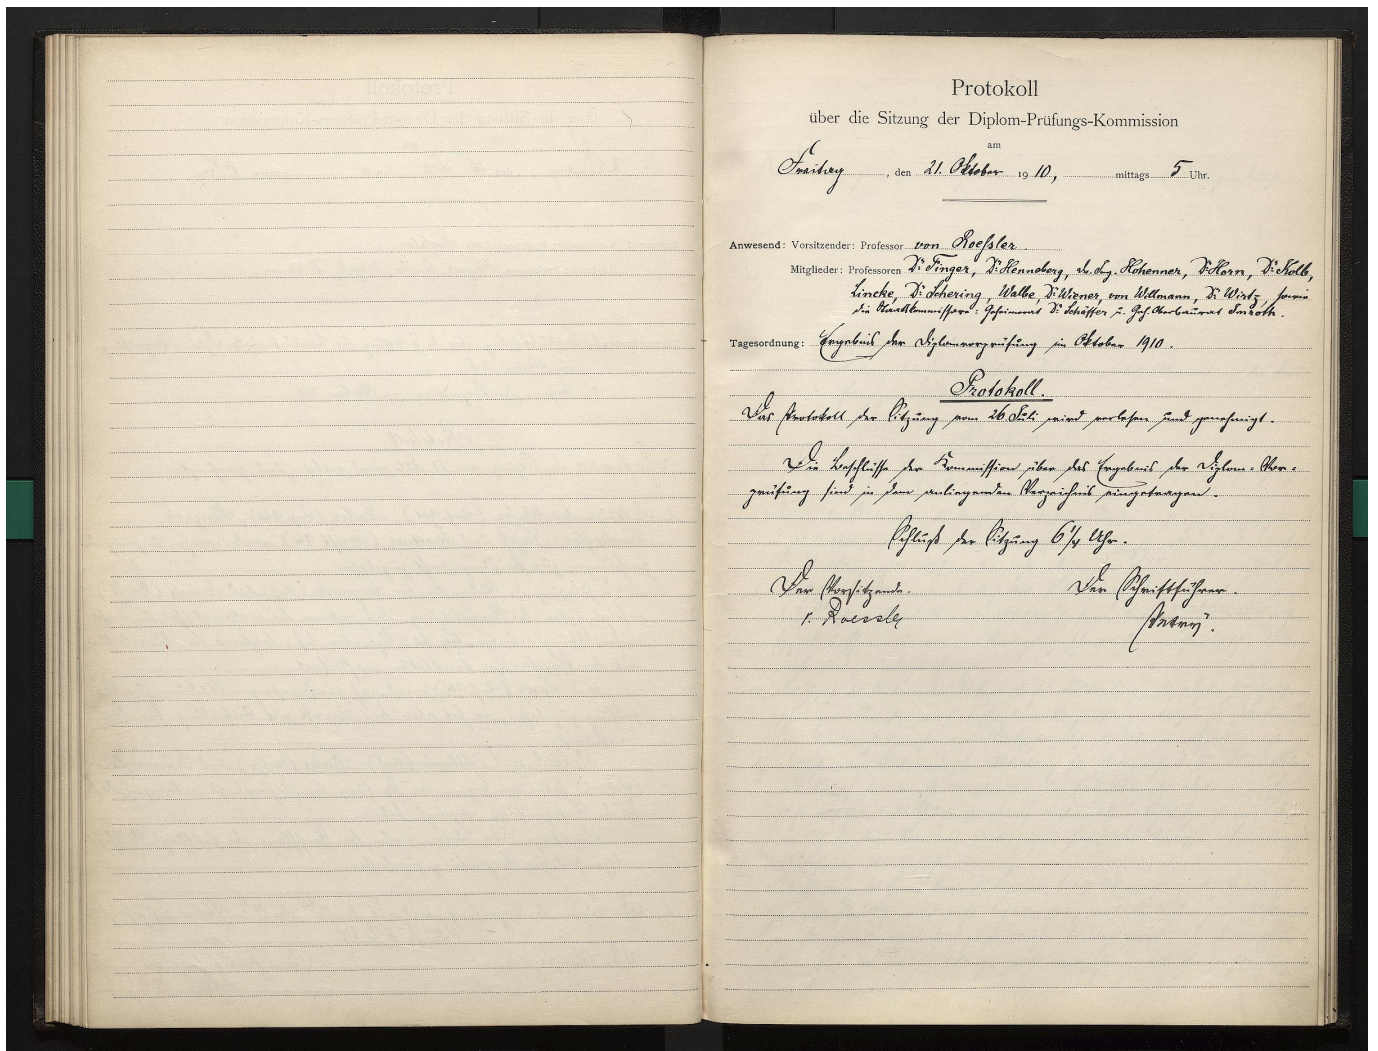 Protokoll
über die Sitzung der Diplom-Prüfungs-Kommission
am
Freitag, den 21. Oktober 1910, mittags 5 Uhr.
Anwesend: Vorsitzender: Professor von Roeßler.
Mitglieder: Professoren Dr. Finger, Dr. Henneberg, Dr. Ing. Hohenner, Dr. Horn, Dr. Kolb,
Lincke, Dr. Schering, Walbe, Dr. Wiener, von Willmann, Dr. Wirtz, sowie
die Staatskommissare: Geheimerat Dr. Schäffer u. Geh. Oberbaurat Imroth.
Tagesordnung: Ergebnis der Diplomvorprüfung im Oktober 1910.
Protokoll.
Das Protokoll der Sitzung vom 26 Juli wird verlesen und genehmigt.
Die Beschlüsse der Kommission über das Ergebnis der Diplom-Vor-
prüfung sind in dem anliegenden Verzeichnis eingetragen.
Schluß der Sitzung 6 1/4 Uhr.
Der Vorsitzende. Der Schriftführer.
v. Roessler